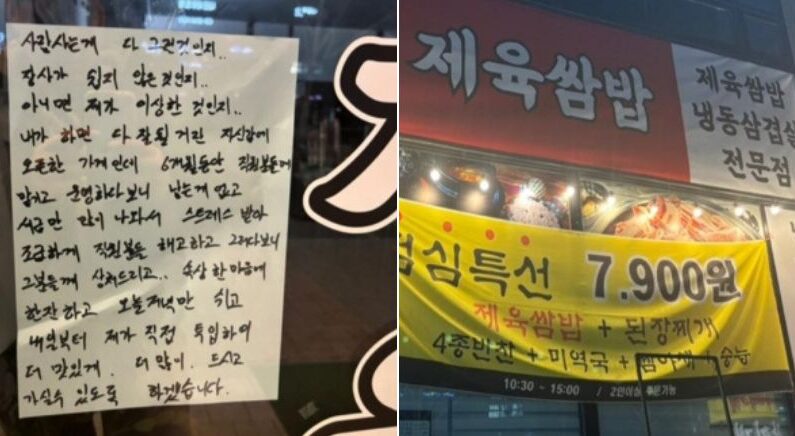 사람사는게 다 그런것인지..
장사가 쉽지 않은것인지..
아니면 제가 이상한 것인지..
내가 하면 다 잘될거란 자신감에
오픈한 가게인데 6개월동안 직원분들에
맡기고 운영하다보니 남는게 없고
세금만 많이 나와서 스트레스 받아
조급하게 직원분들 해고하고 그러다보니
그분들께 상처드리고.. 속상한마음에
한잔하고 오늘저녁만 쉬고
내일부터 제가 직접 투입하여
더 맛있게. 더 많이. 드시고
가실수 있도록 하겠습니다.
제육쌈밥
제육쌈밥
냉동삼겹살
전문점
점심특선 7.900원
제육쌈밥 + 된장찌개
4종반찬 + 미역국 + 쌈야채 + 숭늉
10:30 - 15:00 / 2인이상 주문가능